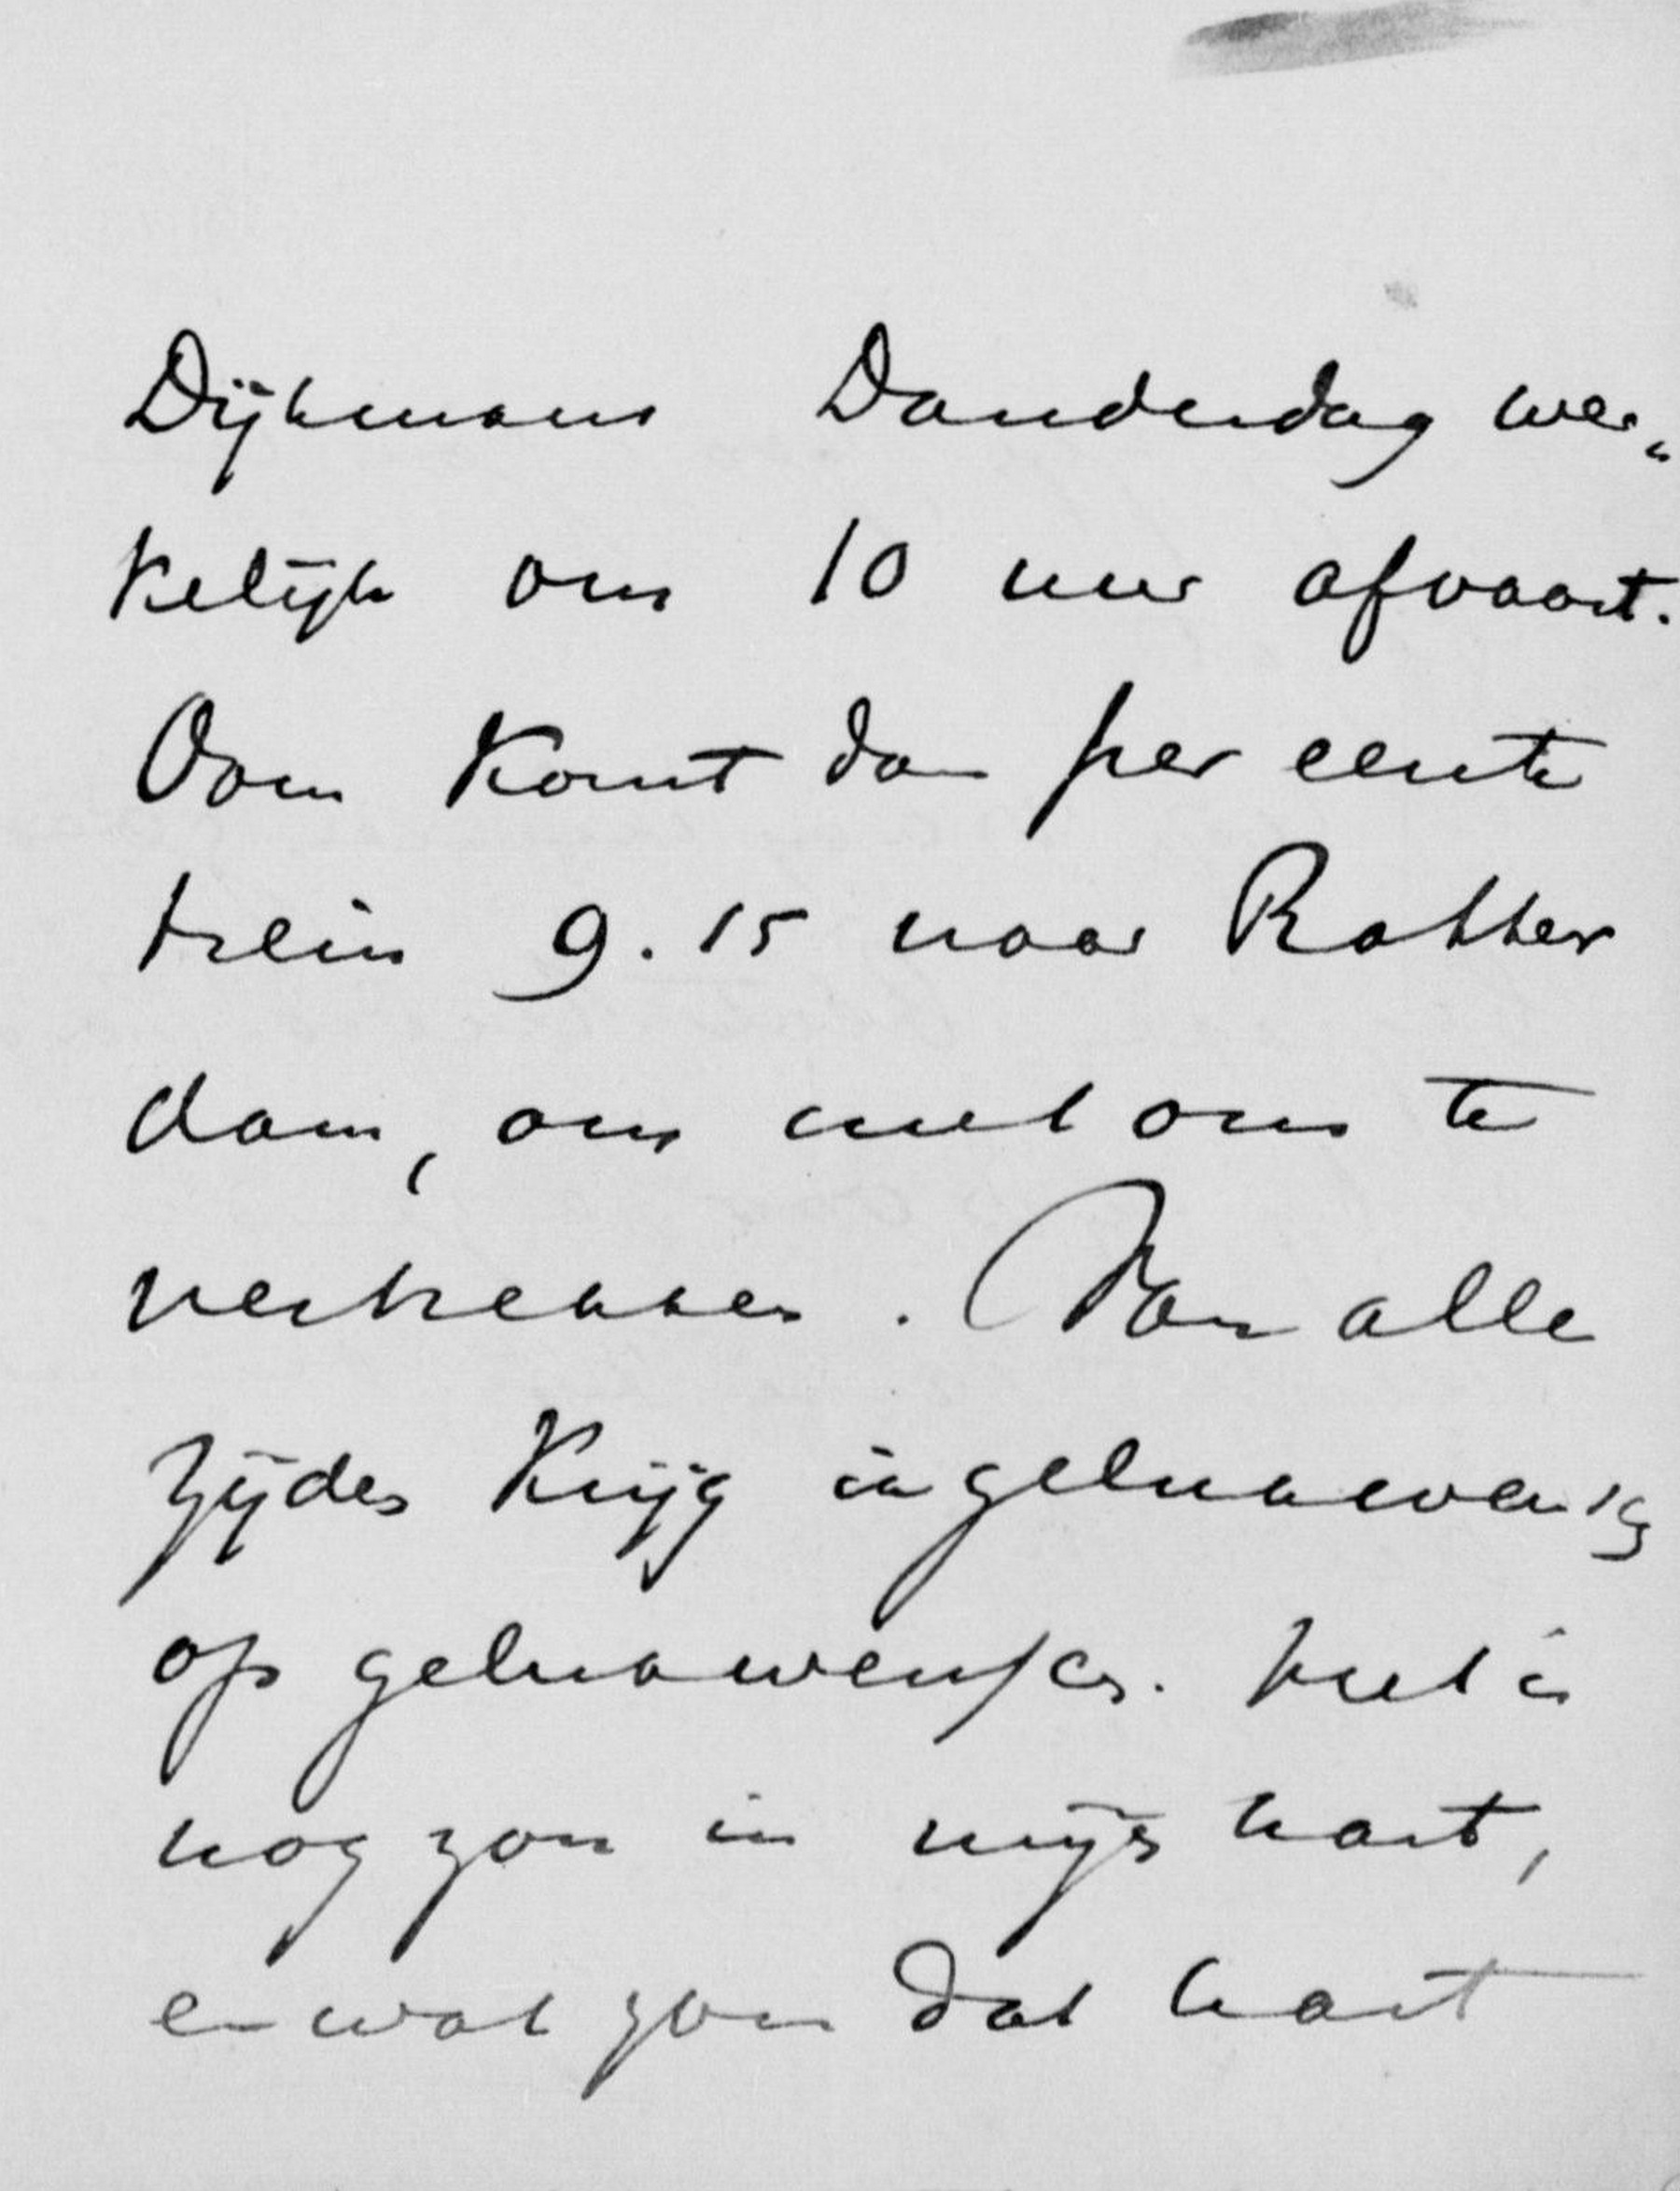 Dijkmans Donderdag wer„
kelijk om 10 uur afvaart.
Oom komt dan per eerste
trein 9.15 naar Rotter
dam, om met ons te
vertrekken. Van alle
zijden krijg ik gelukwensch
op gelukwensch. Het is
nog zon in mijn hart,
en wat zou dat hart